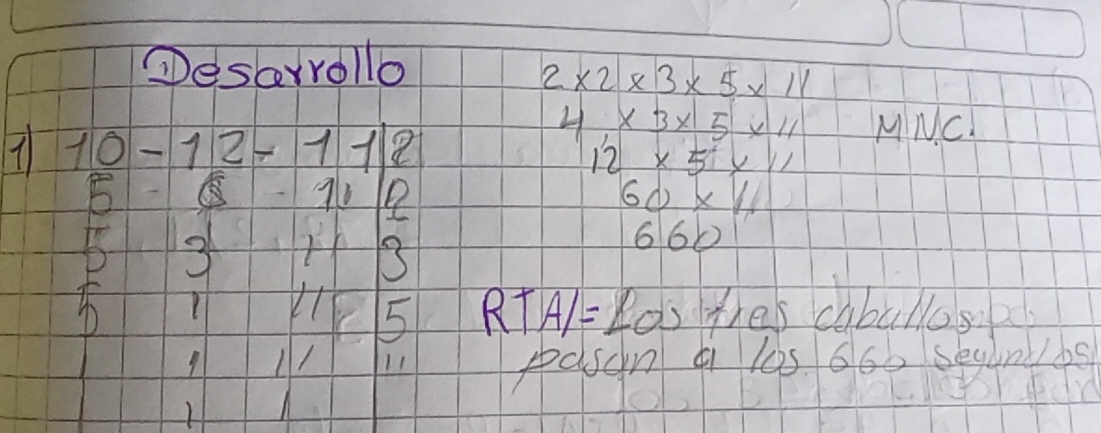 Desarrollo
1) 10 - 12 - 11 | 2
5 - 6 - 11 | 2
5 3 11 | 3
5 1 11 | 5
1 1 11 | 11
1 1
2 x 2 x 3 x 5 x 11
4 x 3 x 5 x 11 M.N.C.
12 x 5 x 11
60 x 11
660
RTA/= Los tres caballos
pasan a los 660 segundos